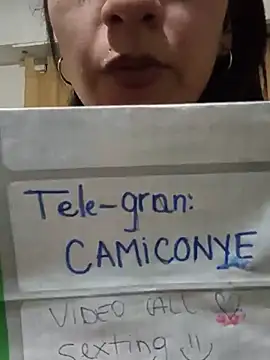 Tele-gran:
CAMiCONYE
VIDEO CALL ♡
Sexting ツ